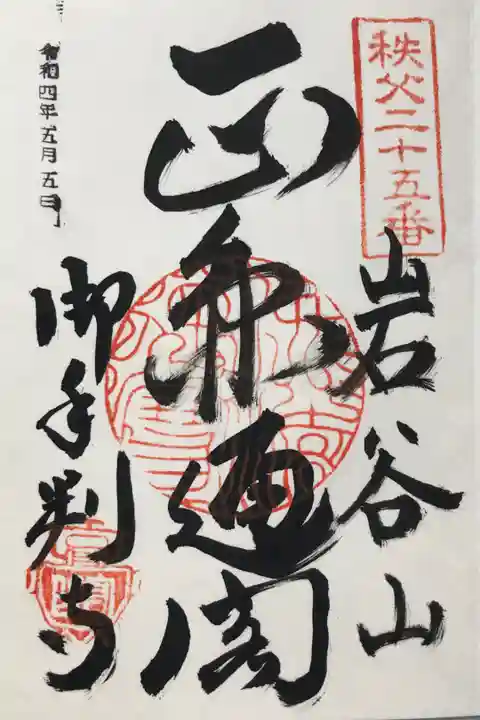 秩父二十五番
岩谷山
正 通閣
御手判寺
令和四年五月五日